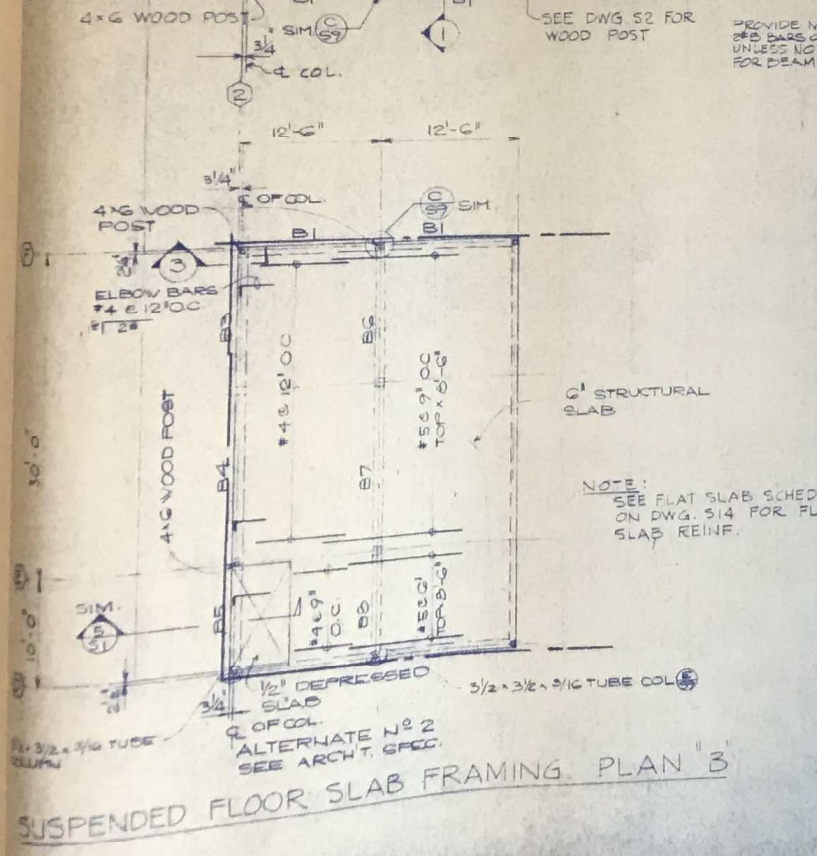 4×6 WOOD POST
B1
B1
SIM. C
S9
1
SEE DWG. S2 FOR
WOOD POST
PROVIDE
2#5 BARS
UNLESS NO
FOR BEAM
3/4"
℄ COL.
2
12'-6" 12'-6"
3/4"
℄ OF COL.
C
S9 SIM.
4×6 WOOD
POST
B1 B1
3
2 1/4"
ELBOW BARS
#4 @ 12" O.C.
B3
B6
#4 @ 12" O.C.
#5 @ 9" O.C.
TOP × 8'-6"
6" STRUCTURAL
SLAB
4×6 WOOD POST
30'-0"
B4
B7
NOTE:
SEE FLAT SLAB SCHED
ON DWG. S14 FOR FL
SLAB REINF.
SIM.
5
S1
10'-0"
B5
#4 @ 9"
O.C.
B8
#5 @ 6"
TOP 8'-6"
1/2" DEPRESSED
SLAB
3 1/2 × 3 1/2 × 3/16 TUBE COL
3/4"
℄ OF COL.
3 1/2 × 3/16 TUBE
COLUMN
ALTERNATE Nº 2
SEE ARCH'T. SPEC.
SUSPENDED FLOOR SLAB FRAMING PLAN "3"